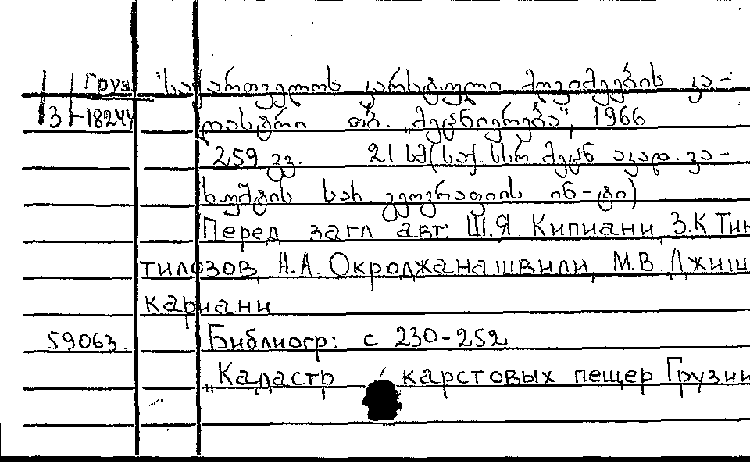 Груз "საქართველოს კარსტული მღვიმეების კა-
3-18244 დასტრი თბ. „მეცნიერება", 1966
259 გვ. 21 სმ (საქ. სსრ მეცნ აკად. ვა-
ხუშტის სახ გეოგრაფიის ინ-ტი)
Перед загл авт Ш.Я Кипиани, З.К Тин
тилозов, Н.А. Окроджанашвили, М.В Джиш
кариани
59063. Библиогр: с 230-252
„Кадастр карстовых пещер Грузии